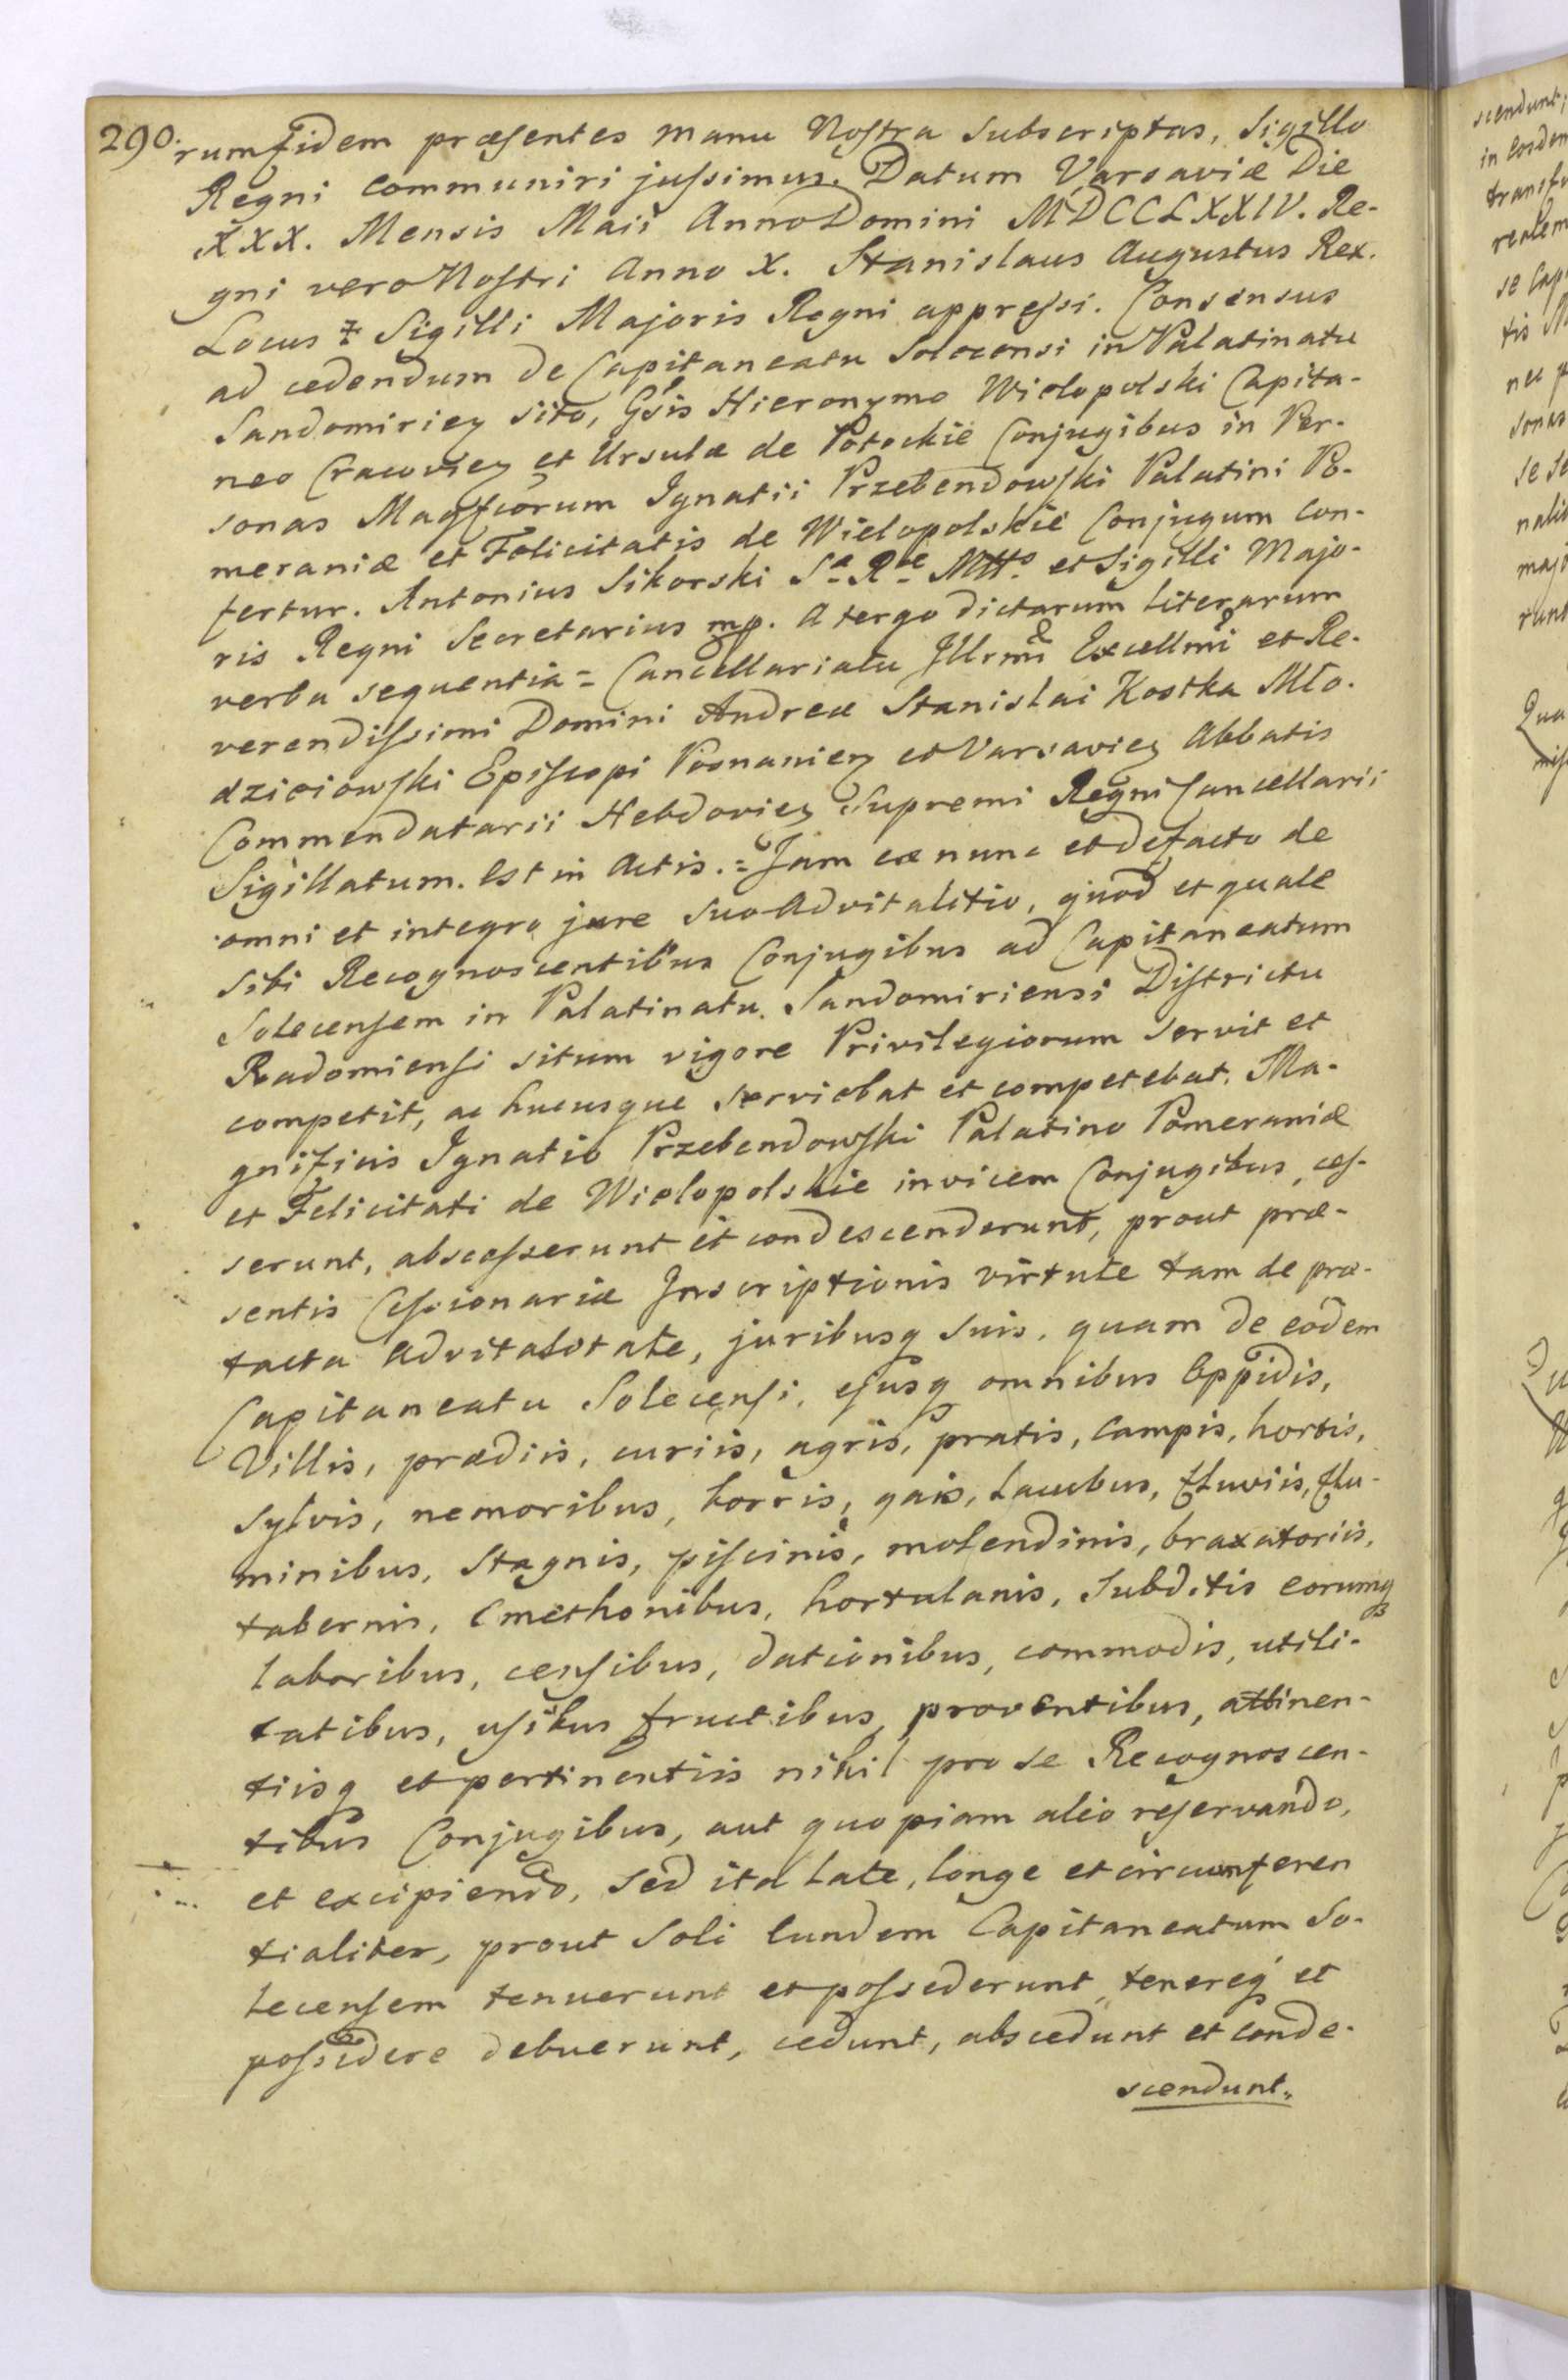 290. rum fidem præsentes manu Nostra Subscriptas, Sigillo
Regni communiri jussimus. Datum Varsaviæ Die
XXX. Mensis Maii Anno Domini MDCCLXXIV. Re-
gni vero Nostri Anno X. Stanislaus Augustus Rex.
Locus Sigilli Majoris Regni appressi. Consensus
ad cedendum de Capitaneatu Solecensi in Palatinatu
Sandomirien sito, Gsis Hieronymo Wielopolski Capita-
neo Cracovien et Ursulæ de Potockie Conjugibus in Per-
sonas Magfcorum Ignatii Przebendowski Palatini Po-
meraniæ et Felicitatis de Wielopolskie Conjugum con-
fertur. Antonius Sikorski Sæ Ræ Mttis et Sigilli Majo-
ris Regni Secretarius mp. A tergo dictarum literarum
verba sequentia = Cancellariatu Illrmi Excellmi et Re-
verendissimi Domini Andreæ Stanislai Kostka Mło-
dzieiowski Episcopi Posnanien et Varsavien Abbatis
Commendatarii Hebdovien Supremi Regni Cancellarii
Sigillatum. Est in Actis. = Jam ex nunc et de facto de
omni et integro jure suo Advitalitio, quod et quale
sibi Recognoscentibus Conjugibus ad Capitaneatum
Solecensem in Palatinatu Sandomiriensi Districtu
Radomiensi situm vigore Privilegiorum servit et
competit, ac hucusque serviebat et competebat. Ma-
gnificis Ignatio Przebendowski Palatino Pomeraniæ
et Felicitati de Wielopolskie invicem Conjugibus, ces-
serunt, abscesserunt et condescenderunt, prout præ-
sentis Cessionariæ Inscriptionis virtute tam de præ-
tacta Advitalitate, juribusq suis, quam de eodem
Capitaneatu Solecensi, ejusq omnibus Oppidis,
Villis, prædiis, curiis, agris, pratis, campis, hortis,
sylvis, nemoribus, borris, gais, lacubus, fluviis, flu-
minibus, stagnis, piscinis, molendinis, braxatoriis,
tabernis, Cmethonibus, hortulanis, Subditis eorumq
laboribus, censibus, dationibus, commodis, utili-
tatibus, usibus fructibus, proventibus, attinen-
tiisq et pertinentiis nihil pro se Recognoscen-
tibus Conjugibus, aut quopiam alio reservando,
et excipiendo, sed ita late, longe et circumferen
tialiter, prout soli Eundem Capitaneatum So-
lecensem tenuerunt et possederunt, tenereq et
possidere debuerunt, cedunt, abscedunt et conde-
scendunt